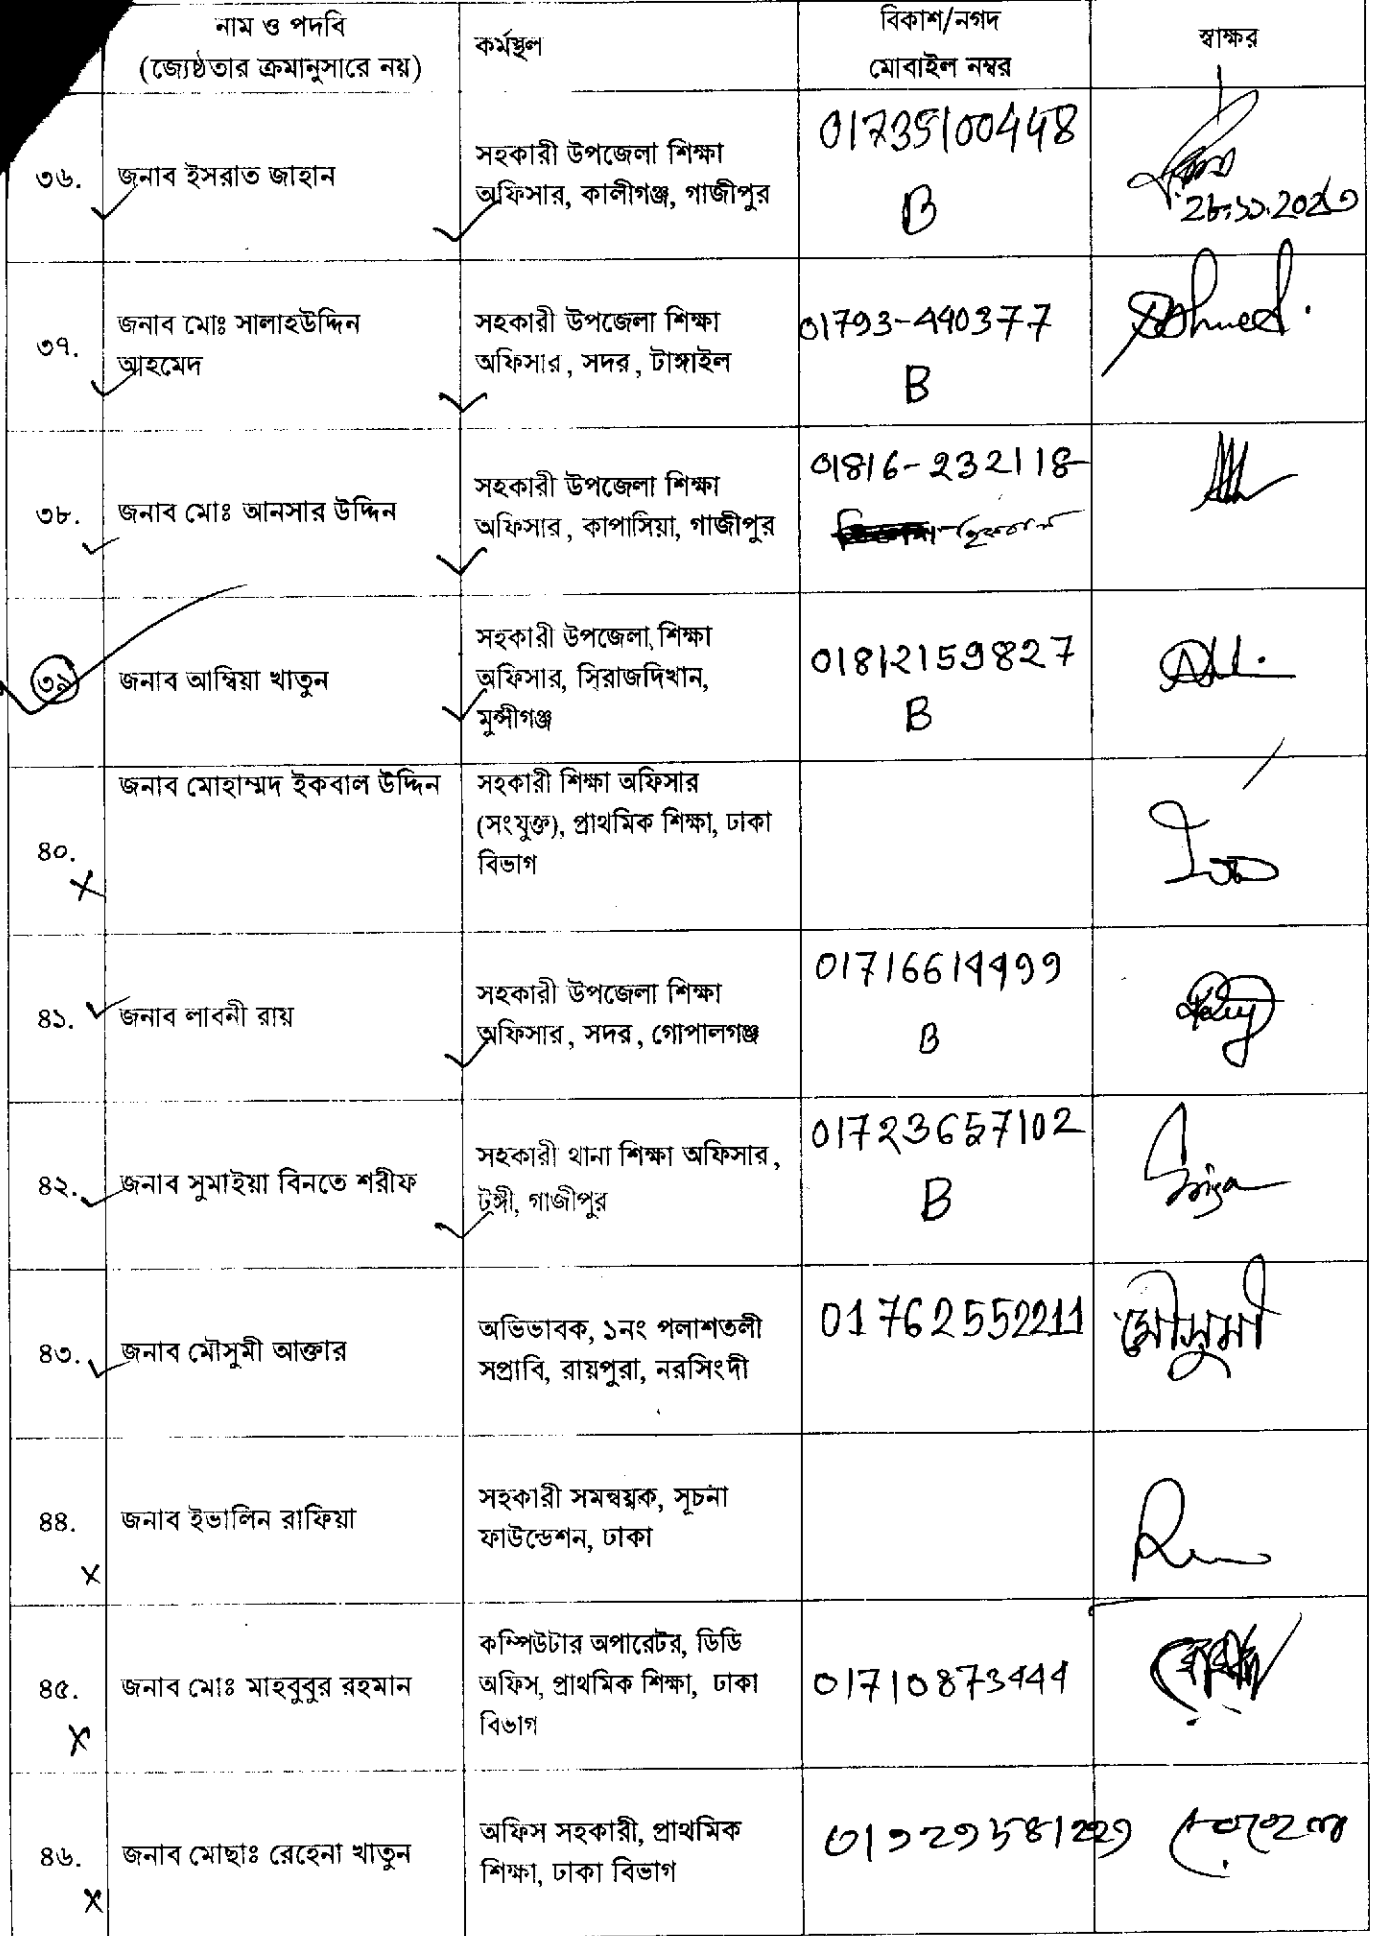 নাম ও পদবি
(জ্যেষ্ঠতার ক্রমানুসারে নয়)
কর্মস্থল
বিকাশ/নগদ
মোবাইল নম্বর
স্বাক্ষর
৩৬.
জনাব ইসরাত জাহান
সহকারী উপজেলা শিক্ষা
অফিসার, কালীগঞ্জ, গাজীপুর
01735100448
B
৩৭.
জনাব মোঃ সালাহউদ্দিন
আহমেদ
সহকারী উপজেলা শিক্ষা
অফিসার, সদর, টাঙ্গাইল
01793-440377
B
৩৮.
জনাব মোঃ আনসার উদ্দিন
সহকারী উপজেলা শিক্ষা
অফিসার, কাপাসিয়া, গাজীপুর
01816-232118
৩৯
জনাব আম্বিয়া খাতুন
সহকারী উপজেলা শিক্ষা
অফিসার, সিরাজদিখান,
মুন্সীগঞ্জ
01812159827
B
৪০.
জনাব মোহাম্মদ ইকবাল উদ্দিন
সহকারী শিক্ষা অফিসার
(সংযুক্ত), প্রাথমিক শিক্ষা, ঢাকা
বিভাগ
৪১.
জনাব লাবনী রায়
সহকারী উপজেলা শিক্ষা
অফিসার, সদর, গোপালগঞ্জ
01716614499
B
৪২.
জনাব সুমাইয়া বিনতে শরীফ
সহকারী থানা শিক্ষা অফিসার,
টঙ্গী, গাজীপুর
01723657102
B
৪৩.
জনাব মৌসুমী আক্তার
অভিভাবক, ১নং পলাশতলী
সপ্রাবি, রায়পুরা, নরসিংদী
01762552211
মৌসুমী
৪৪.
জনাব ইভালিন রাফিয়া
সহকারী সমন্বয়ক, সূচনা
ফাউন্ডেশন, ঢাকা
৪৫.
জনাব মোঃ মাহবুবুর রহমান
কম্পিউটার অপারেটর, ডিডি
অফিস, প্রাথমিক শিক্ষা, ঢাকা
বিভাগ
01710873444
৪৬.
জনাব মোছাঃ রেহেনা খাতুন
অফিস সহকারী, প্রাথমিক
শিক্ষা, ঢাকা বিভাগ